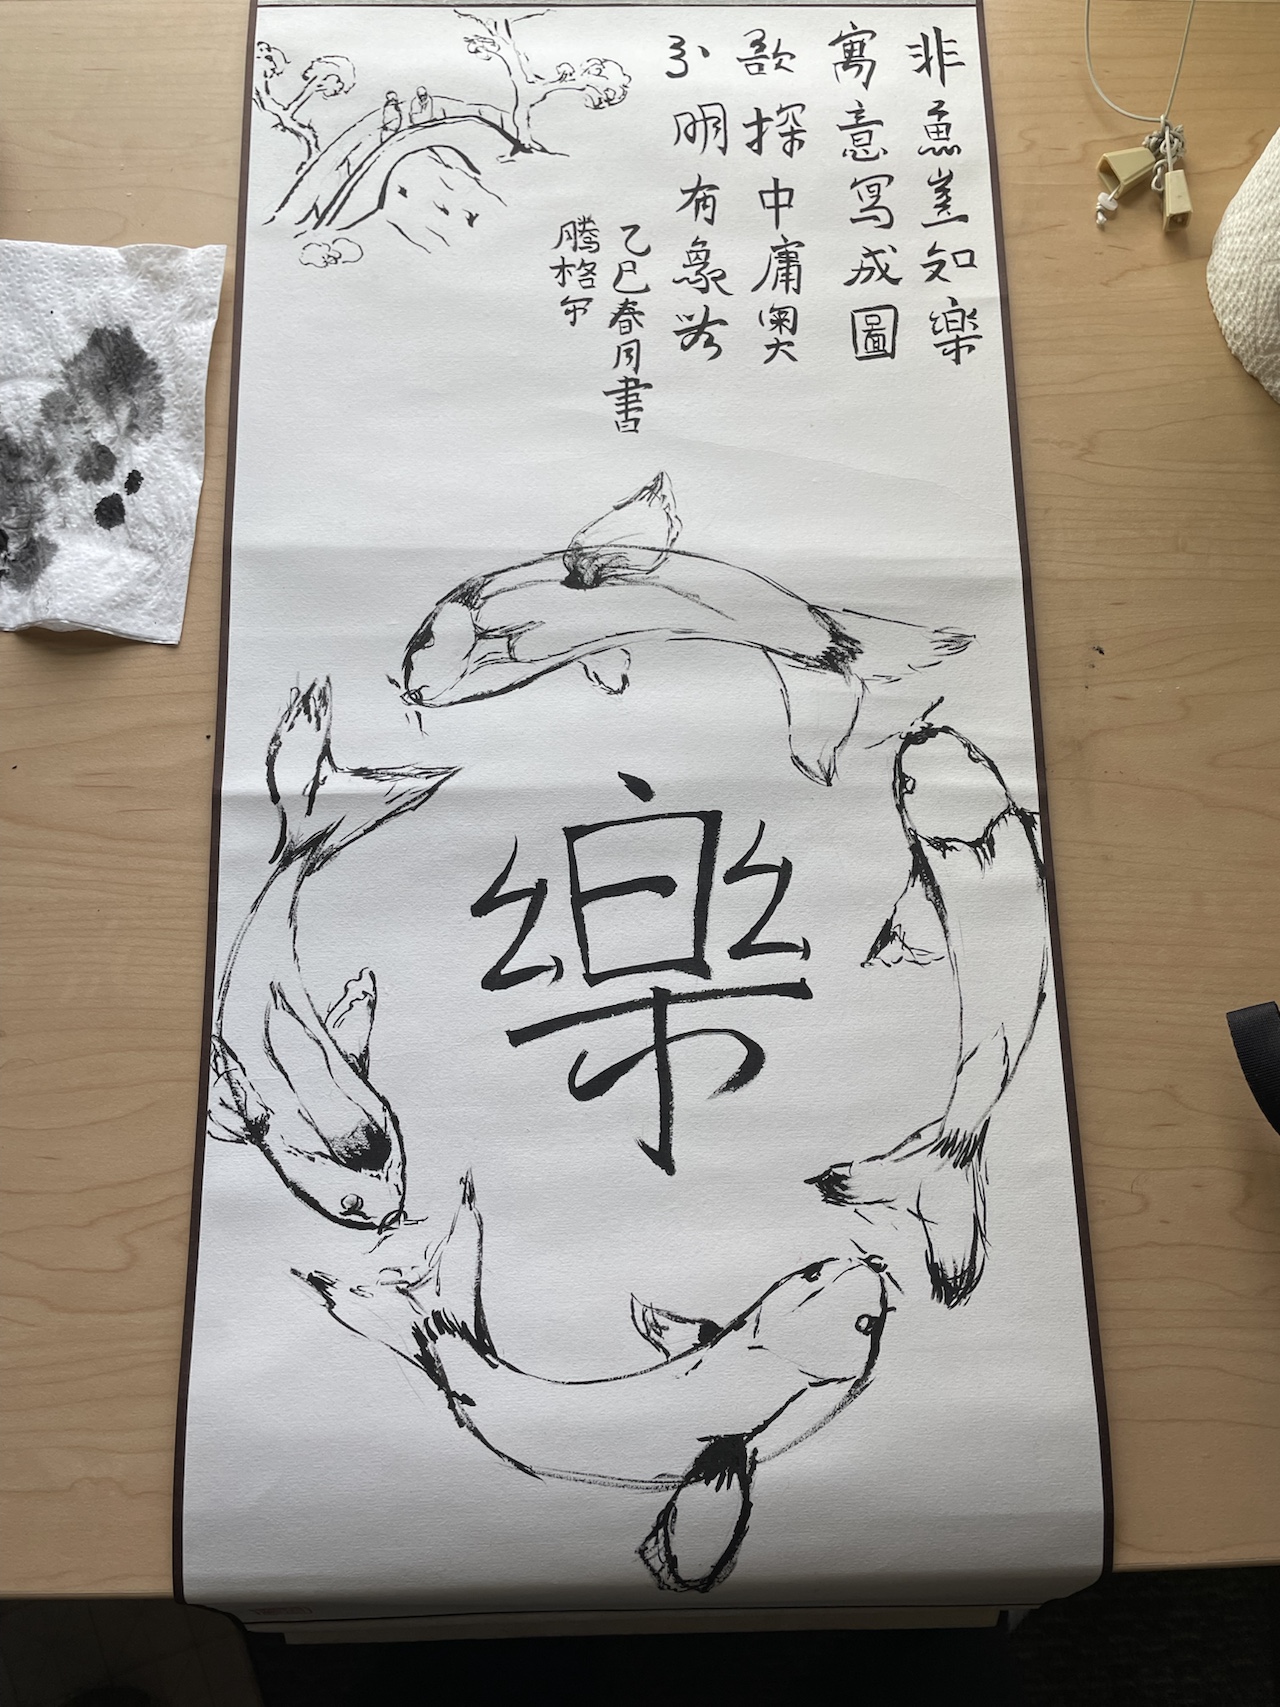 非魚豈知樂
寓意寫成圖
欲探中庸奧
分明有象無
乙巳春月書
騰格尔
樂